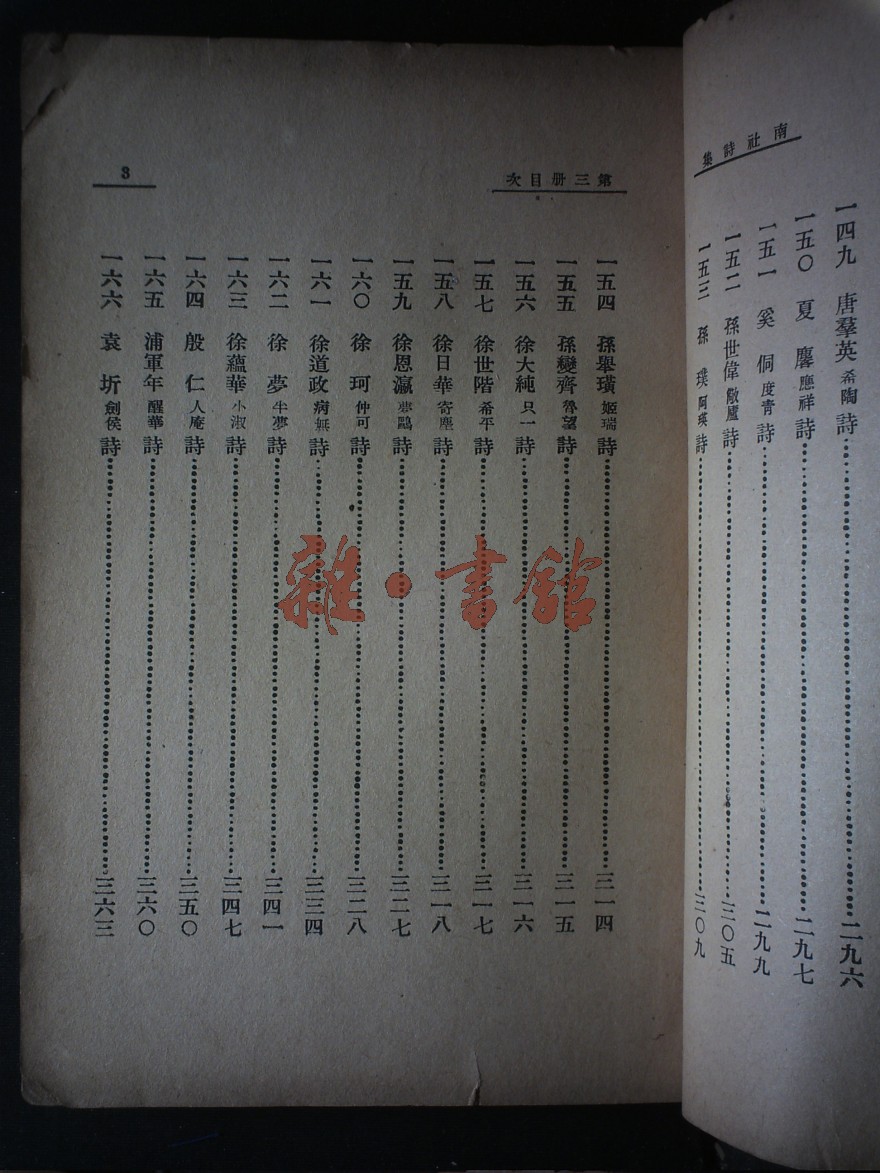 南社詩集
一四九 唐羣英 希陶 詩……二九六
一五〇 夏麐 應祥 詩……二九七
一五一 奚侗 度青 詩……二九九
一五二 孫世偉 敵廬 詩……三〇五
一五三 孫璞 阿瑛 詩……三〇九
第三册目次
3
一五四 孫舉璜 姬瑞 詩……三一四
一五五 孫變齊 魯望 詩……三一五
一五六 徐大純 只一 詩……三一六
一五七 徐世階 希平 詩……三一七
一五八 徐日華 寄塵 詩……三一八
一五九 徐恩瀛 夢鷗 詩……三二七
一六〇 徐珂 仲可 詩……三二八
一六一 徐道政 病無 詩……三三四
一六二 徐夢 半夢 詩……三四一
一六三 徐蘊華 小淑 詩……三四七
一六四 殷仁 人庵 詩……三五〇
一六五 浦軍年 醒華 詩……三六〇
一六六 袁圻 劍侯 詩……三六三
雜·書館